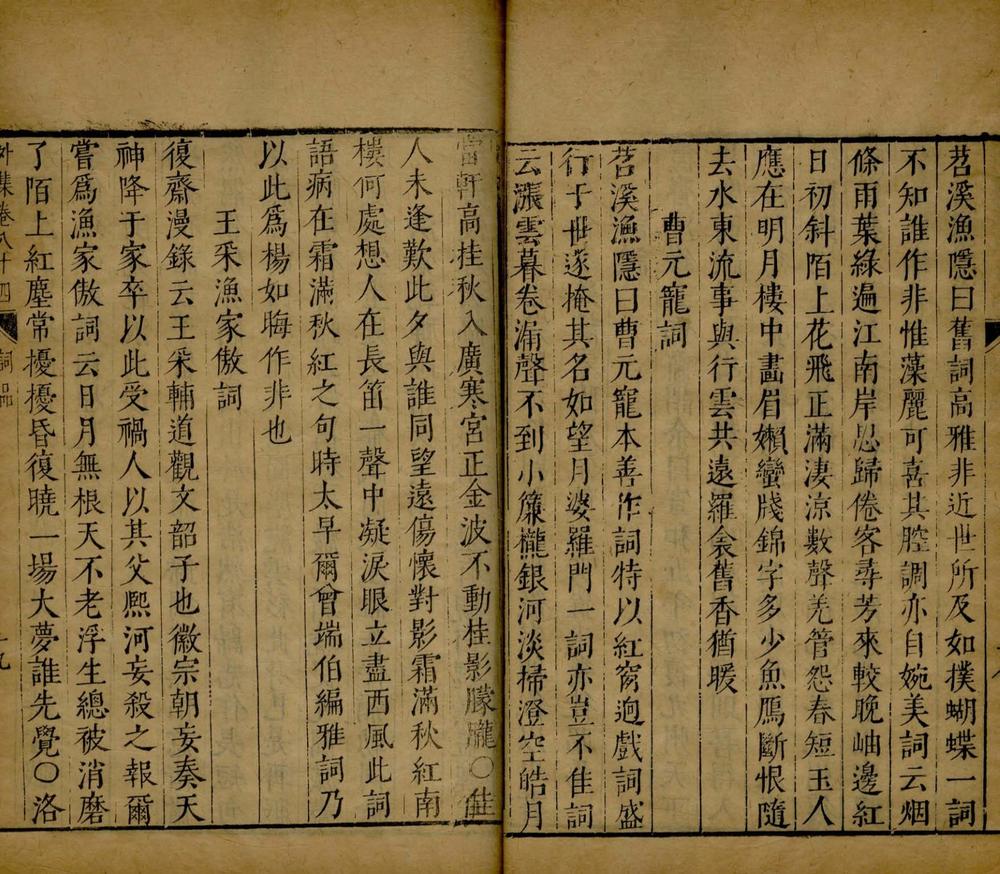 苕溪漁隱曰舊詞高雅非近世所及如撲蝴蝶一詞
不知誰作非惟藻麗可喜其腔調亦自婉美詞云烟
條雨葉綠遍江南岸思歸倦客尋芳來較晚岫邊紅
日初斜陌上花飛正滿淒涼數聲羌管怨春短玉人
應在明月樓中畫眉嬾蠻牋錦字多少魚鴈斷恨隨
去水東流事與行雲共遠羅衾舊香猶暖
曹元寵詞
苕溪漁隱曰曹元寵本善作詞特以紅窗迥戲詞盛
行于世遂掩其名如望月婆羅門一詞亦豈不佳詞
云漲雲暮卷漏聲不到小簾櫳銀河淡掃澄空皓月
當軒高桂秋入廣寒宮正金波不動桂影朦朧○佳
人未逢歎此夕與誰同望遠傷懷對影霜滿秋紅南
樓何處想人在長笛一聲中凝淚眼立盡西風此詞
語病在霜滿秋紅之句時太早爾曾端伯編雅詞乃
以此爲楊如晦作非也
王采漁家傲詞
復齋漫錄云王采輔道觀文韶子也徽宗朝妄奏天
神降于家卒以此受禍人以其父熙河妄殺之報爾
嘗爲漁家傲詞云日月無根天不老浮生總被消磨
了陌上紅塵常擾擾昏復曉一場大夢誰先覺○洛
外集卷八十四 詞品
十九